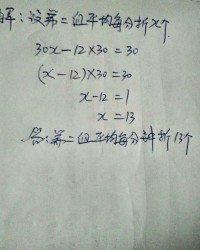 解:设第二组平均每分折x个
30x-12×30=30
(x-12)×30=30
x-12=1
x=13
答:第二组平均每分钟折13个